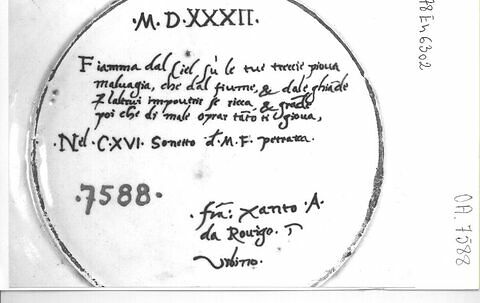 ·M·D·XXXII·
Fiamma dal Ciel sù le tue treccie pioua
maluagia, che dal fiume, & dale ghiāde
ꝑ laltrui impouerir se ricca, & grāde
poi che di male oprar tāto ti gioua,
·Nel·C·XVI· Sonetto d·M·F· petrarca·
·7588·
·frā: Xanto·A·
da Rouigo· ī
Vrbino·
78 En 6302
OA. 7588